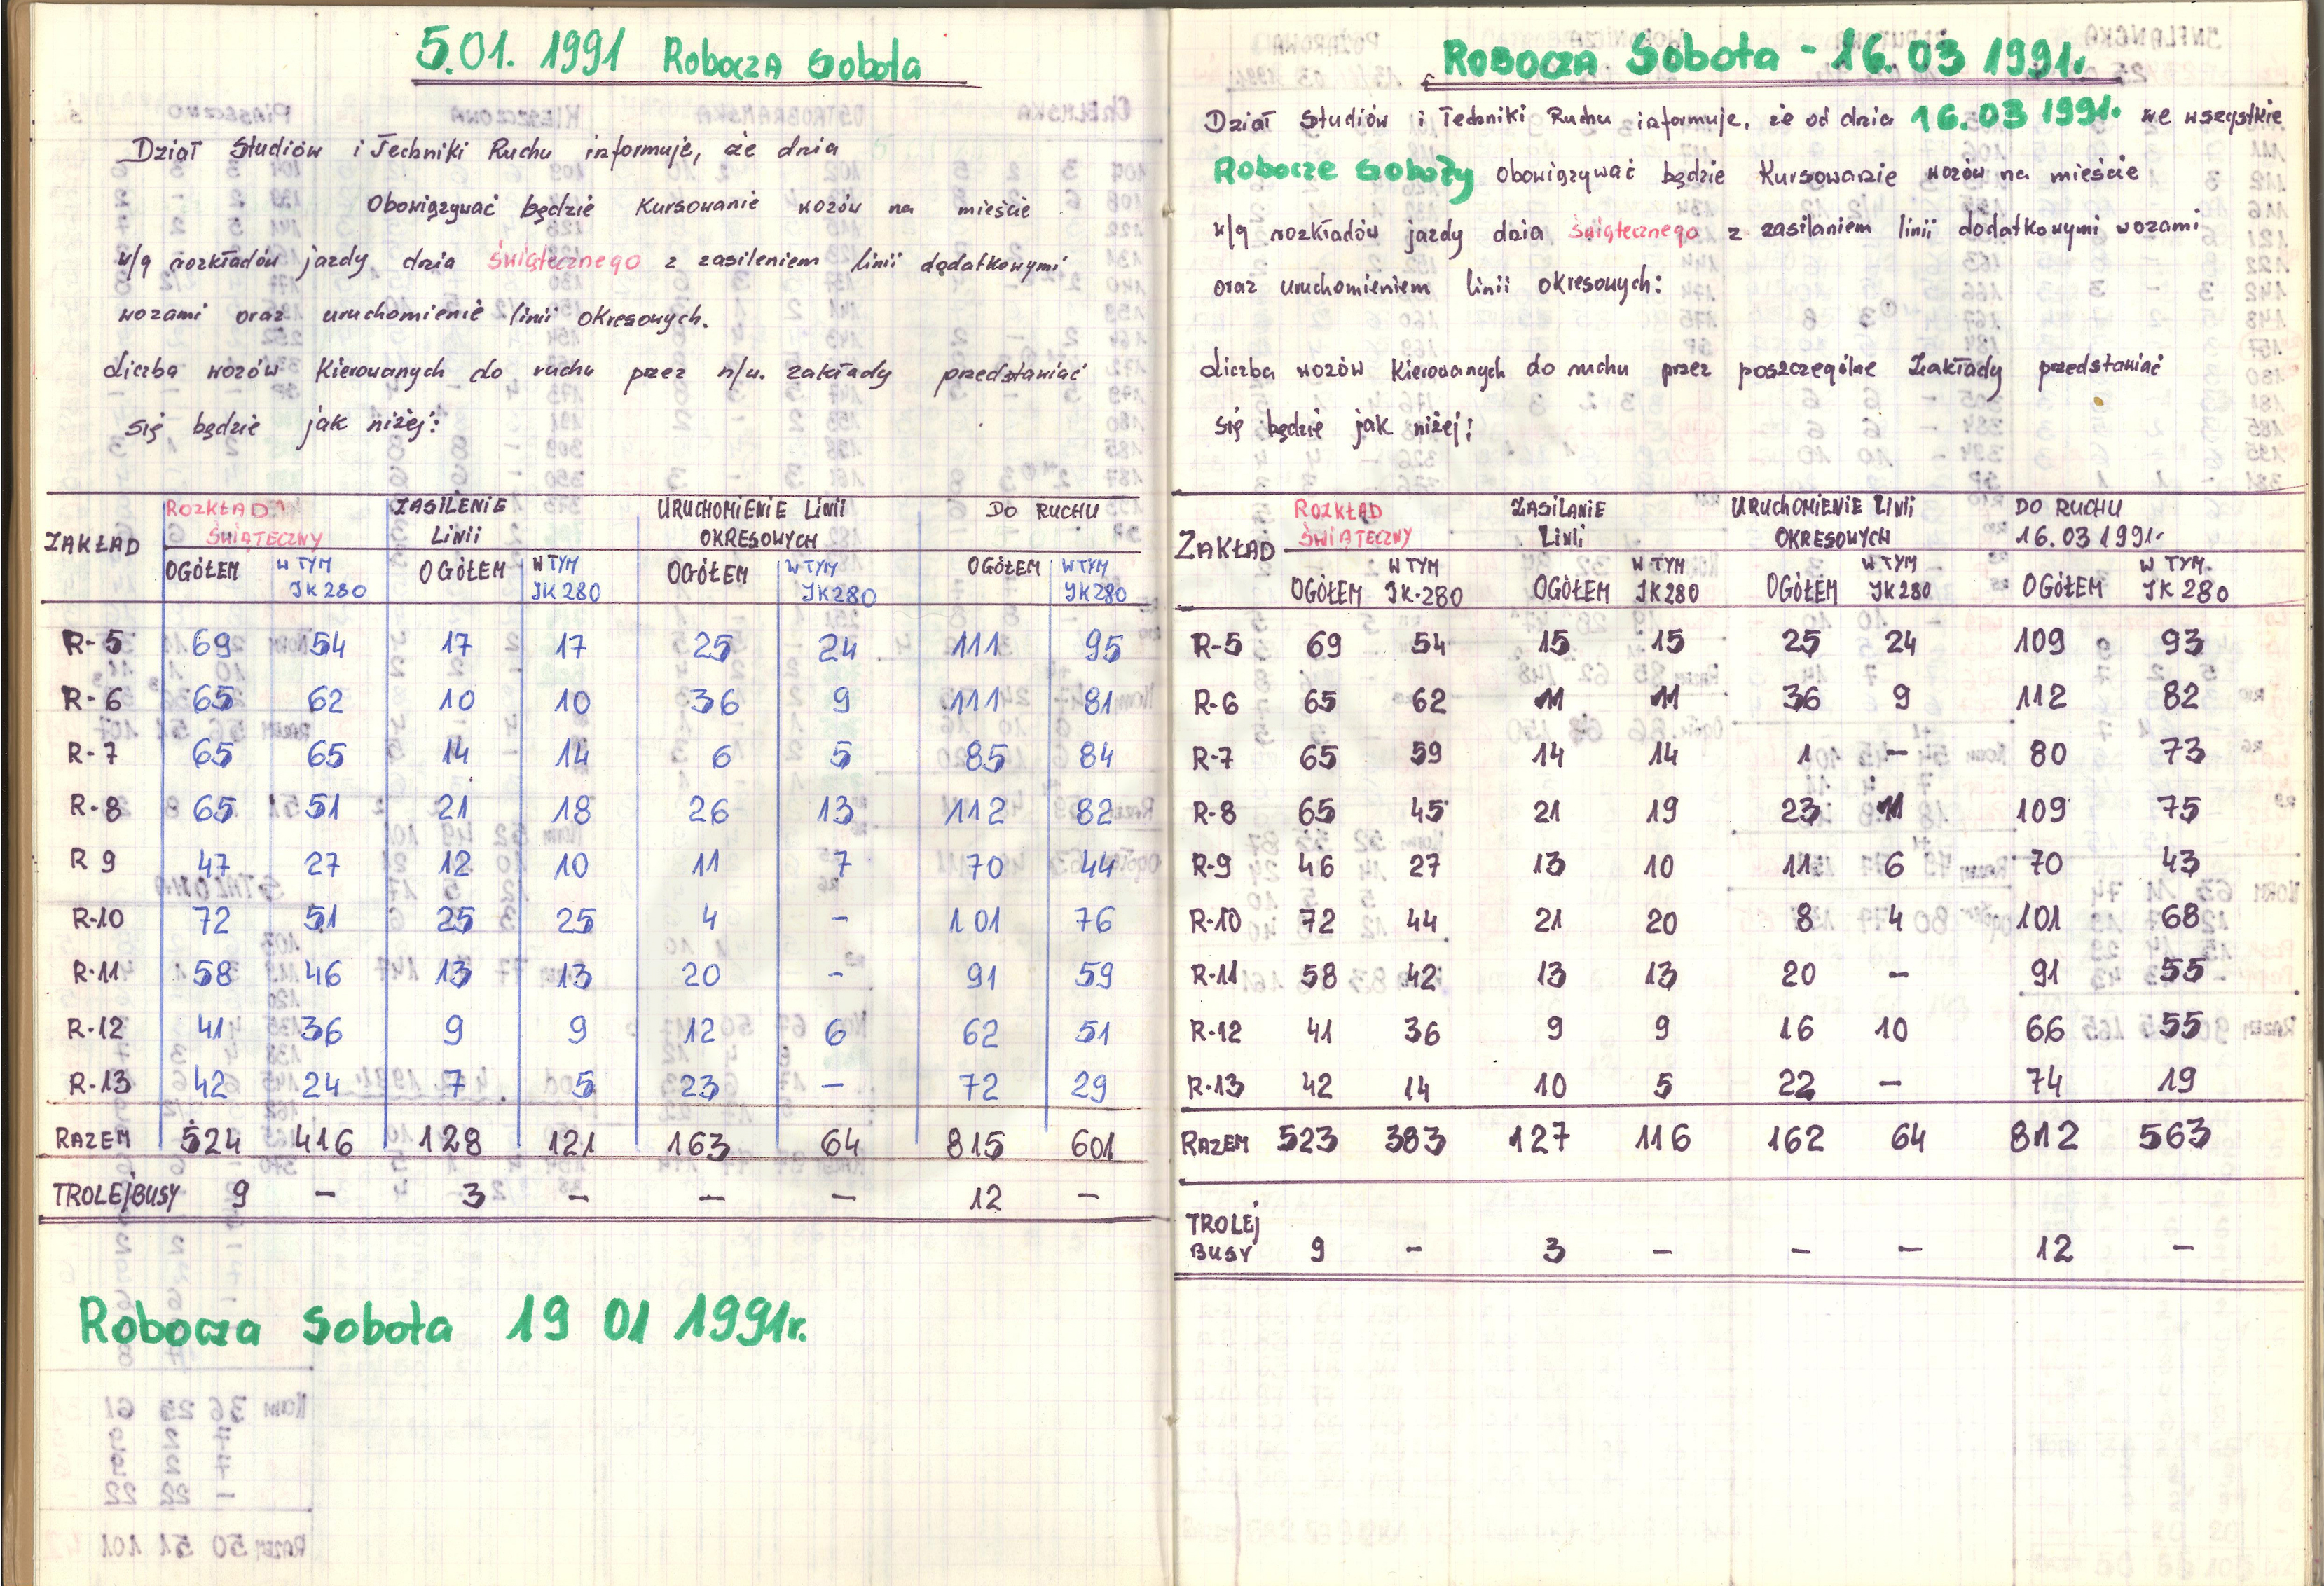 5.01. 1991 Robocza Sobota
Dział Studiów i Techniki Ruchu informuje, że dnia
Obowiązywać będzie Kursowanie wozów na mieście
w/g rozkładów jazdy dnia świątecznego z zasileniem linii dodatkowymi
wozami oraz uruchomienie linii okresowych.
Liczba wozów Kierowanych do ruchu przez n/w. zakłady przedstawiać
się będzie jak niżej:
ZAKŁAD ROZKŁAD ŚWIĄTECZNY ZASILENIE LINII URUCHOMIENIE LINII OKRESOWYCH DO RUCHU
OGÓŁEM W TYM JK 280 OGÓŁEM W TYM JK 280 OGÓŁEM W TYM JK 280 OGÓŁEM W TYM JK 280
R-5 69 54 17 17 25 24 111 95
R-6 65 62 10 10 36 9 111 81
R-7 65 65 14 14 6 5 85 84
R-8 65 51 21 18 26 13 112 82
R 9 47 27 12 10 11 7 70 44
R-10 72 51 25 25 4 – 101 76
R-11 58 46 13 13 20 – 91 59
R-12 41 36 9 9 12 6 62 51
R-13 42 24 7 5 23 – 72 29
RAZEM 524 416 128 121 163 64 815 601
TROLEJBUSY 9 – 3 – – – 12 –
Robocza Sobota 19 01 1991r.
Robocza Sobota - 16.03 1991r.
Dział Studiów i Techniki Ruchu informuje, że od dnia 16.03 1991r. we wszystkie
Robocze Soboty obowiązywać będzie Kursowanie wozów na mieście
w/g rozkładów jazdy dnia świątecznego z zasilaniem linii dodatkowymi wozami
oraz uruchomieniem linii okresowych:
Liczba wozów Kierowanych do ruchu przez poszczególne Zakłady przedstawiać
się będzie jak niżej:
ZAKŁAD ROZKŁAD ŚWIĄTECZNY ZASILANIE LINII URUCHOMIENIE LINII OKRESOWYCH DO RUCHU 16.03 1991r.
OGÓŁEM W TYM JK-280 OGÓŁEM W TYM JK 280 OGÓŁEM W TYM JK 280 OGÓŁEM W TYM. JK 280
R-5 69 54 15 15 25 24 109 93
R-6 65 62 11 11 36 9 112 82
R-7 65 59 14 14 1 – 80 73
R-8 65 45 21 19 23 11 109 75
R-9 46 27 13 10 11 6 70 43
R-10 72 44 21 20 8 4 101 68
R-11 58 42 13 13 20 – 91 55
R-12 41 36 9 9 16 10 66 55
R-13 42 14 10 5 22 – 74 19
RAZEM 523 383 127 116 162 64 812 563
TROLEJ
BUSY 9 – 3 – – – 12 –